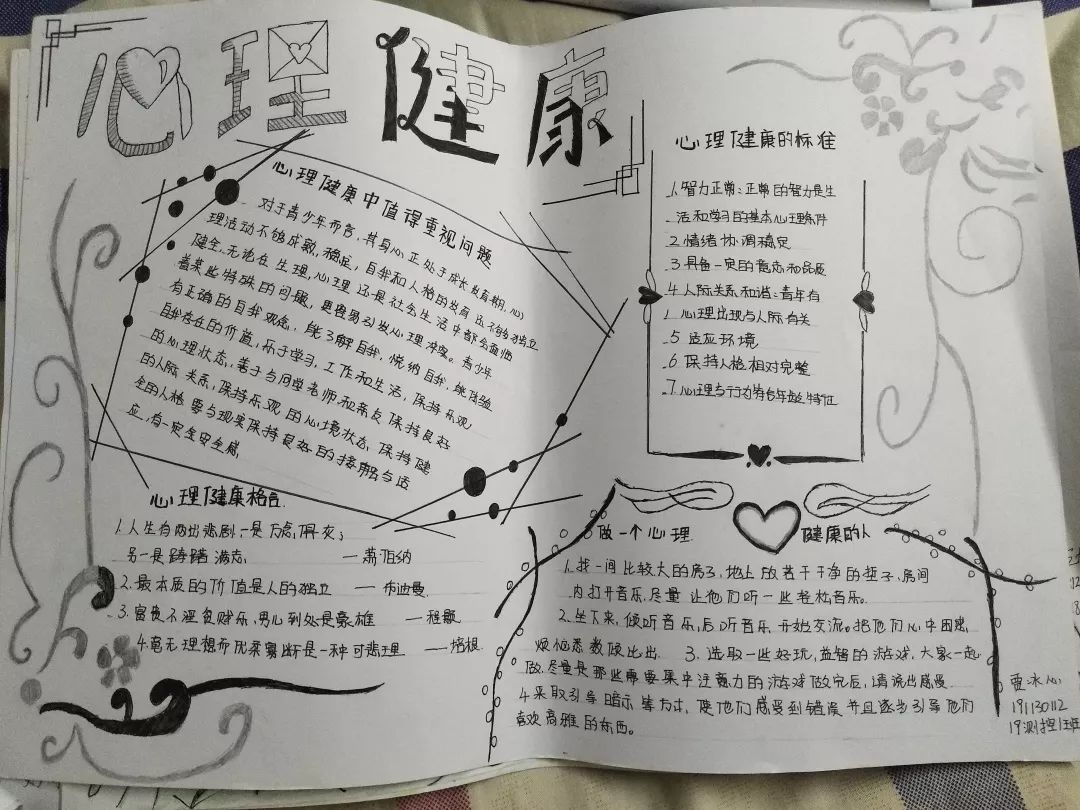 心理健康
心理健康中值得重视问题
对于青少年而言，其身心正处于成长发育期，心
理活动不够成熟，稳定，自我和人格的发育还不够独立
健全，无论在生理，心理还是社会生活中都会面临
着某些特殊的问题，更容易引发心理冲突。青少年
有正确的自我观念，能了解自我，悦纳自我，能体验
自我存在的价值，乐于学习，工作和生活，保持乐观
的心理状态，善于与同学老师和亲友保持良好
的人际关系，保持乐观的心境状态，保持健
全的人格要与现实保持良好的接触与适
应，有一定全安全感，
心理健康格言
1.人生有两出悲剧，一是万念俱灰；
另一是踌躇满志，——萧伯纳
2.最本质的价值是人的独立——布迪曼
3.富贵不淫贫贱乐，男儿到处是豪雄——程颢
4.毫无理想而优柔寡断是一种可悲理——培根
心理健康的标准
1.智力正常：正常的智力是生
活和学习的基本心理条件
2.情绪协调稳定
3.具备一定的意志和品质
4.人际关系和谐：青年有
心理出现与人际有关
5.适应环境
6.保持人格相对完整
7.心理与行为符合年龄特征
做一个心理健康的人
1.找一间比较大的房子，地上放若干干净的垫子，房间
内打开音乐，尽量让他们听一些轻松音乐。
2.坐下来，倾听音乐，后听音乐开始交流。把他们心中困惑，
烦恼悉数使出出 3.选取一些好玩，益智的游戏，大家一起
做，尽量是那些需要集中注意力的游戏做完后，请说出感受
4.采取引导暗示等方式，使他们感受到错误并且逐步引导他们
喜欢高雅的东西。
贾冰心
191130112
19测控1班